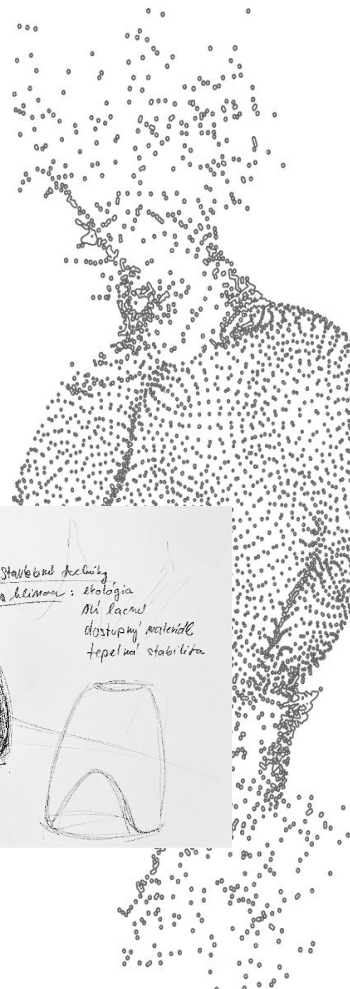 stavebné techniky
: ekológia
sú lacné
dostupný materiál
tepelná stabilita